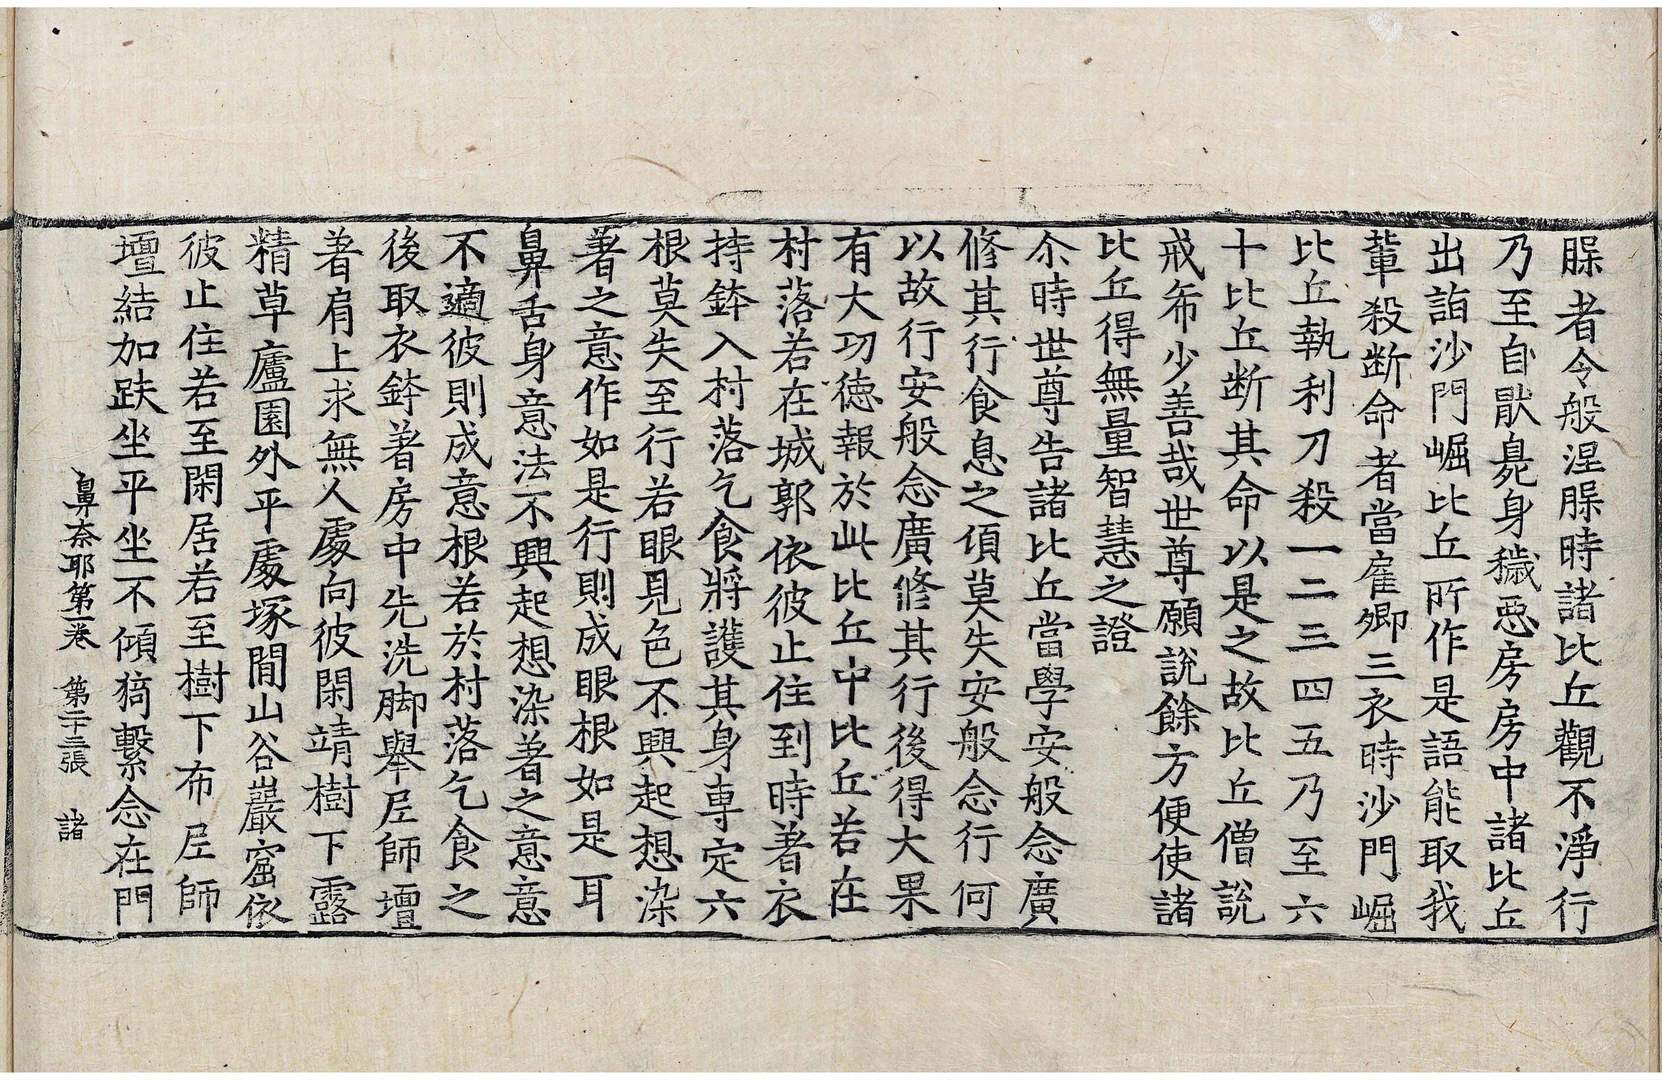 脲者令般涅脲時諸比丘觀不淨行
乃至自猒臭身穢惡房房中諸比丘
出詣沙門崛比丘所作是語能取我
輩殺断命者當雇卿三衣時沙門崛
比丘執利刀殺一二三四五乃至六
十比丘断其命以是之故比丘僧說
戒希少善哉世尊願說餘方便使諸
比丘得無量智慧之證
尒時世尊告諸比丘當學安般念廣
修其行食息之頃莫失安般念行何
以故行安般念廣修其行後得大果
有大功德報於此比丘中比丘若在
村落若在城郭依彼止住到時著衣
持鉢入村落乞食將護其身専定六
根莫失至行若眼見色不興起想染
著之意作如是行則成眼根如是耳
鼻舌身意法不興起想染著之意意
不適彼則成意根若於村落乞食之
後取衣鉢著房中先洗脚舉𡰱師壇
著肩上求無人處向彼閑靖樹下露
精草廬園外平處塚間山谷巖窟依
彼止住若至閑居若至樹下布𡰱師
壇結加趺坐平坐不傾猗繫念在門
鼻奈耶第一卷 第二十三張 諸